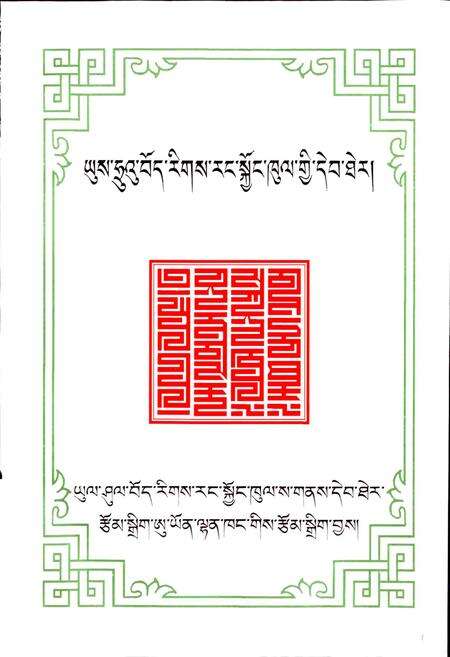 ཡུས་ཧྲུའུ་བོད་རིགས་རང་སྐྱོང་ཁུལ་གྱི་དེབ་ཐེར།
ཡུལ་ཤུལ་བོད་རིགས་རང་སྐྱོང་ཁུལ་ས་གནས་དེབ་ཐེར་
རྩོམ་སྒྲིག་ཨུ་ཡོན་ལྷན་ཁང་གིས་རྩོམ་སྒྲིག་བྱས།